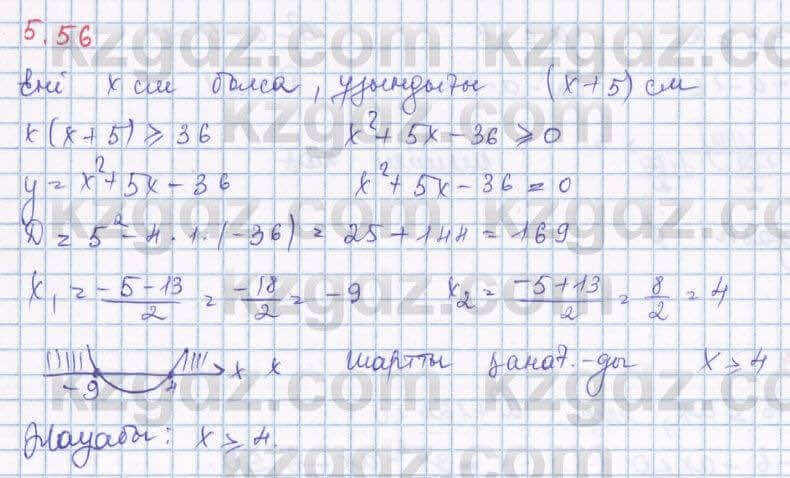 5.56
Ені x см болса, ұзындығы (x+5) см
x(x+5) ≥ 36 x²+5x-36 ≥ 0
y = x²+5x-36 x²+5x-36 = 0
D = 5²-4·1·(-36) = 25+144 = 169
x₁ = (-5-13)/2 = -18/2 = -9 x₂ = (-5+13)/2 = 8/2 = 4
-9 4 x x шартты қанағ.-ды x ≥ 4
Жауабы: x ≥ 4.
kzgdz.com